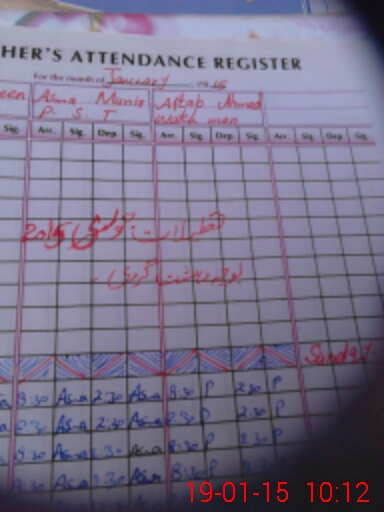 HER'S ATTENDANCE REGISTER
For the month of January
een Asma Munir Aftab Ahmed
P. S. T Watch man
Sig. Arr. Sig. Dep. Sig. Arr. Sig. Dep. Sig. Arr. Sig. Dep. Sig.
تعطیلات
بوجہ دہشت گردی -
Sunday
8:30 Asma 2:30 Asma 8:30 P 2:30 P
8:30 Asma 2:30 Asma 8:30 P 2:30 P
8:30 Asma 2:30 Asma 8:30 P 2:30 P
8:30 Asma 2:30 Asma 8:30 P
19-01-15 10:12